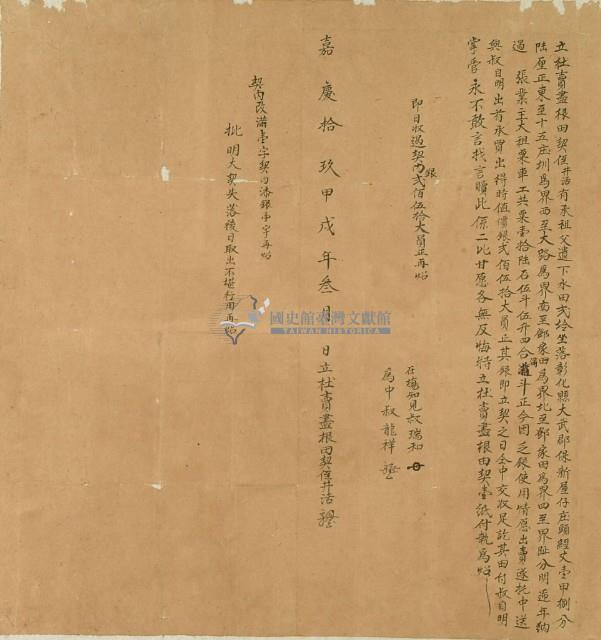 立杜賣盡根田契侄井活有承祖父遺下水田弍坵坐落彰化縣大武郡保新屋仔庄頭經丈壹甲捌分
陸厘正東至十五庄圳為界西至大路為界南至鄒家田為界北至鄒家田為界四至界址分明逓年納
過 張業主大租粟車工共粟壹拾陸石伍斗伍升四合滿斗正今因乏銀使用情愿出賣遂托中送
與叔自明出首承買出得時值價銀弍佰伍拾大員正其銀即立契之日仝中交收足訖其田付叔自明
掌管永不敢言找言贖此係二比甘愿各無反悔特立杜賣盡根田契壹紙付執為炤
即日收過契內銀弍佰伍拾大員正再炤
在塲知見叔瑞和
為中叔龍祥
嘉慶拾玖甲戌年叁月 日立杜賣盡根田契侄井活
契內改滿壹字契內添銀壹字再炤
批明大契失落後日取出不堪行用再炤
國史館臺灣文獻館
TAIWAN HISTORICA